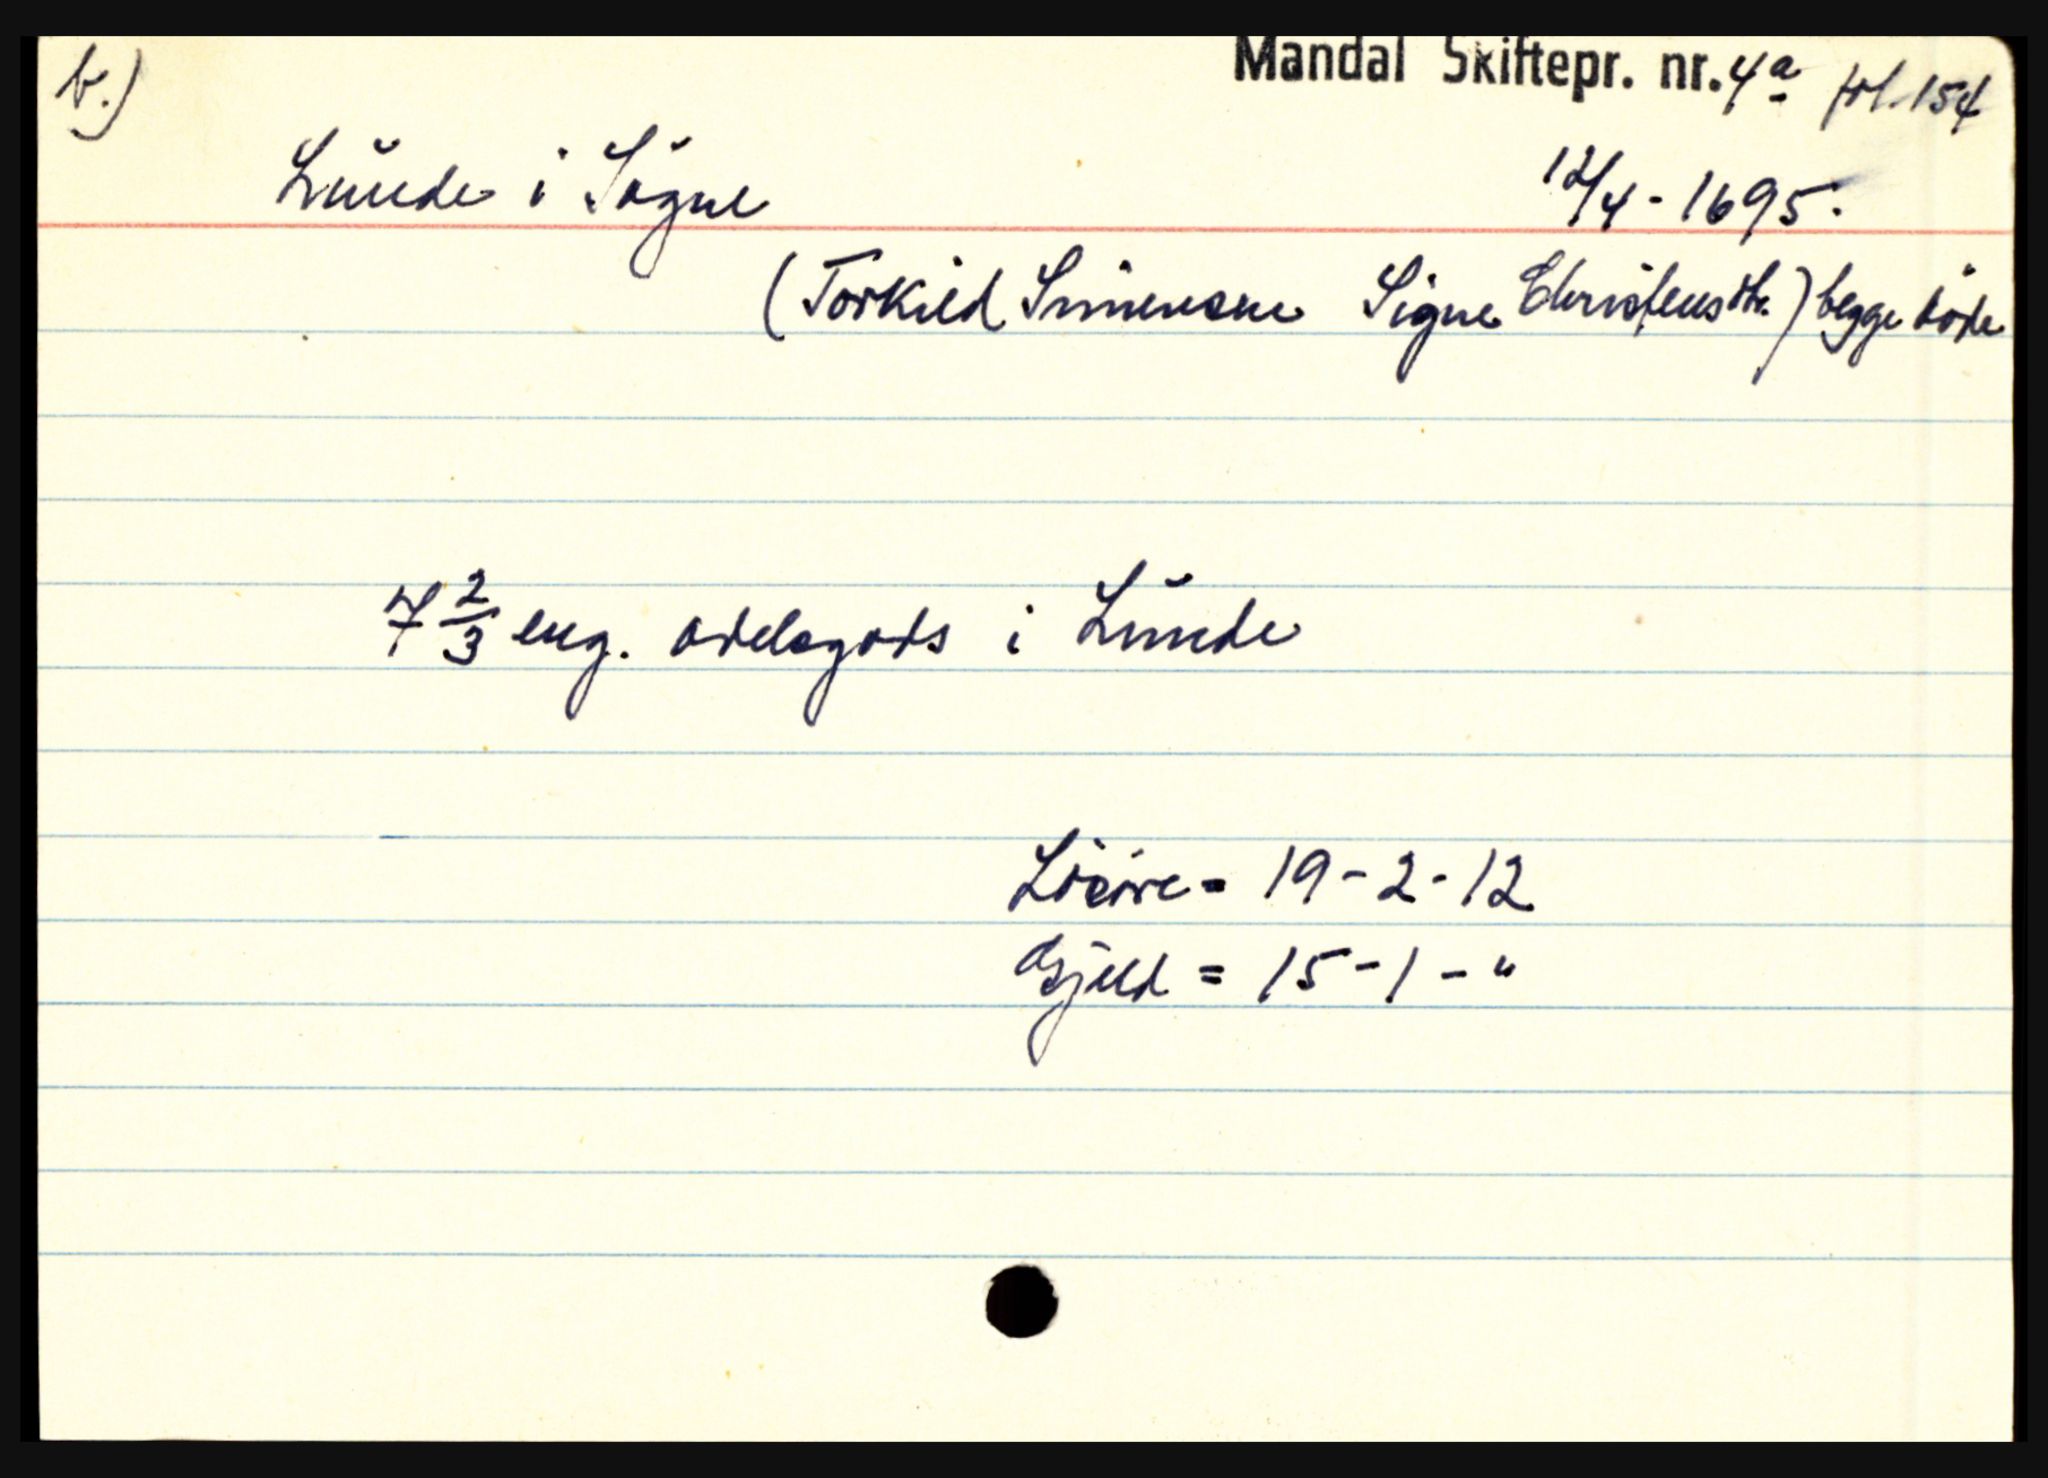 b.)
Mandal Skiftepr. nr. 4a fol. 154
Lunde i Søgne 12/4 - 1695.
(Torkild Simensen Signe Christensdtr.) begge døde
7 2/3 eng. odelsgods i Lunde
Løsøre = 19 - 2 - 12
Gjeld = 15 - 1 - "